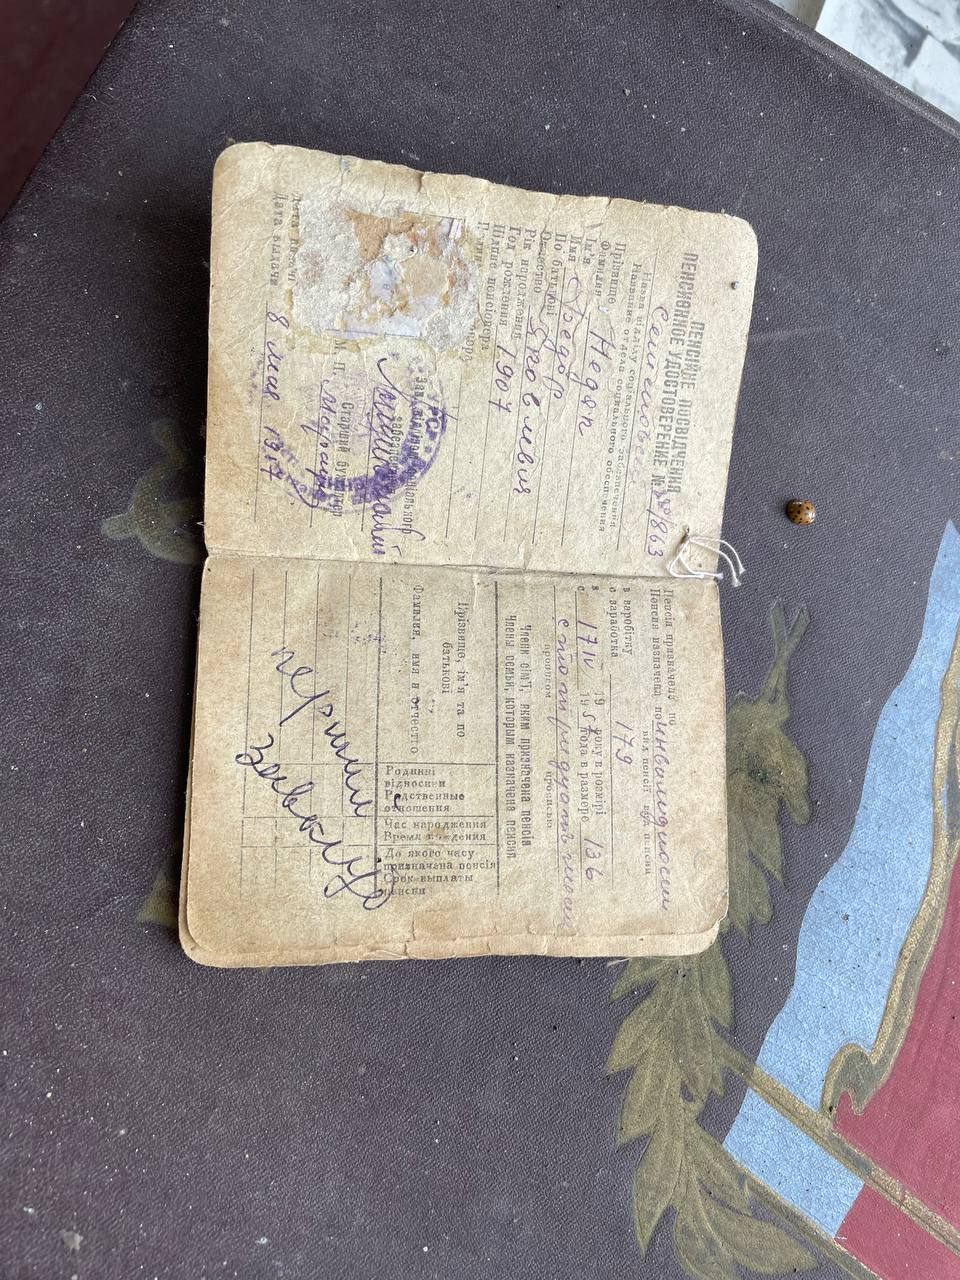 ПЕНСІЙНЕ ПОСВІДЧЕННЯ
ПЕНСИОННОЕ УДОСТОВЕРЕНИЕ № /863
Назва відділу соціального забезпечення
Название отдела социального обеспечения
Прізвище
Фамилия Недяк
Ім'я
Имя Федор
По батькові
Отчество Яковлевич
Рік народження
Год рождения 1907
Підпис пенсіонера
Зав. відділом соціального
забезпечення
М. П. Старший бухгалтер
Дата видачі
Дата выдачи 8 мая 1957
Пенсія призначена по
Пенсия назначена по инвалидности
вид пенсії вид пенсии
з заробітку
с заработка 179
з 19 року в розмірі
с 17 IV 1957 года в размере 136
сто тридцать шесть
прописом прописью
Члени сім'ї, яким призначена пенсія
Члены семьи, которым назначена пенсия
Прізвище, ім'я та по
батькові
Фамилия, имя и отчество
Родинні
відносини
Родственные
отношения
Час народження
Время рождения
До якого часу
призначена пенсія
Срок выплаты
пенсии